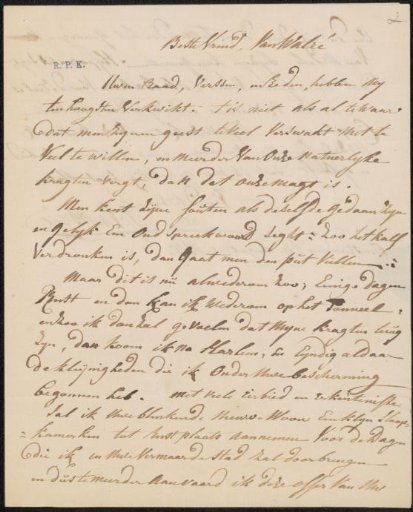 Beste Vriend, Van Walré
R.P.K.
Uwen Raad, Verssen, en Reden, hebben My
ten hoogsten Verkwikt. tis niet als al te waar
dat men zijnen geest te veel Verswakt met te
Veel te willen, en meerder Van Onze natuerlyke
kragten vergt, dan dat onze magt is.
Men kent zijne fouten als deselfde gedaan zijn
en gelyk Een Oud Spreekwoord Seght: Zoo het kalf
Verdronken is, dan gaat men den put Vullen
Maar dit is nu alwederom Zoo; Eenige dagen
Rust en dan kan ik Wederom op het Tonneel
en zoo ik dan zal gevoelen dat Myne kragten
zyn, dan koom ik na Harlem, En Eyndig aldaar
de klijnigheden die ik Onder Uwe bescherming
begonnen heb. met vele eerbied en
Zal ik Uwe nieuwe Woon En klyn Slaap
kamerken tot Rustplaats aanneemen Voor de Dagen
die ik in Uwe Vermaarde Stad zal doorbrengen
en dus te meerder Aanvaard ik deze offer Van